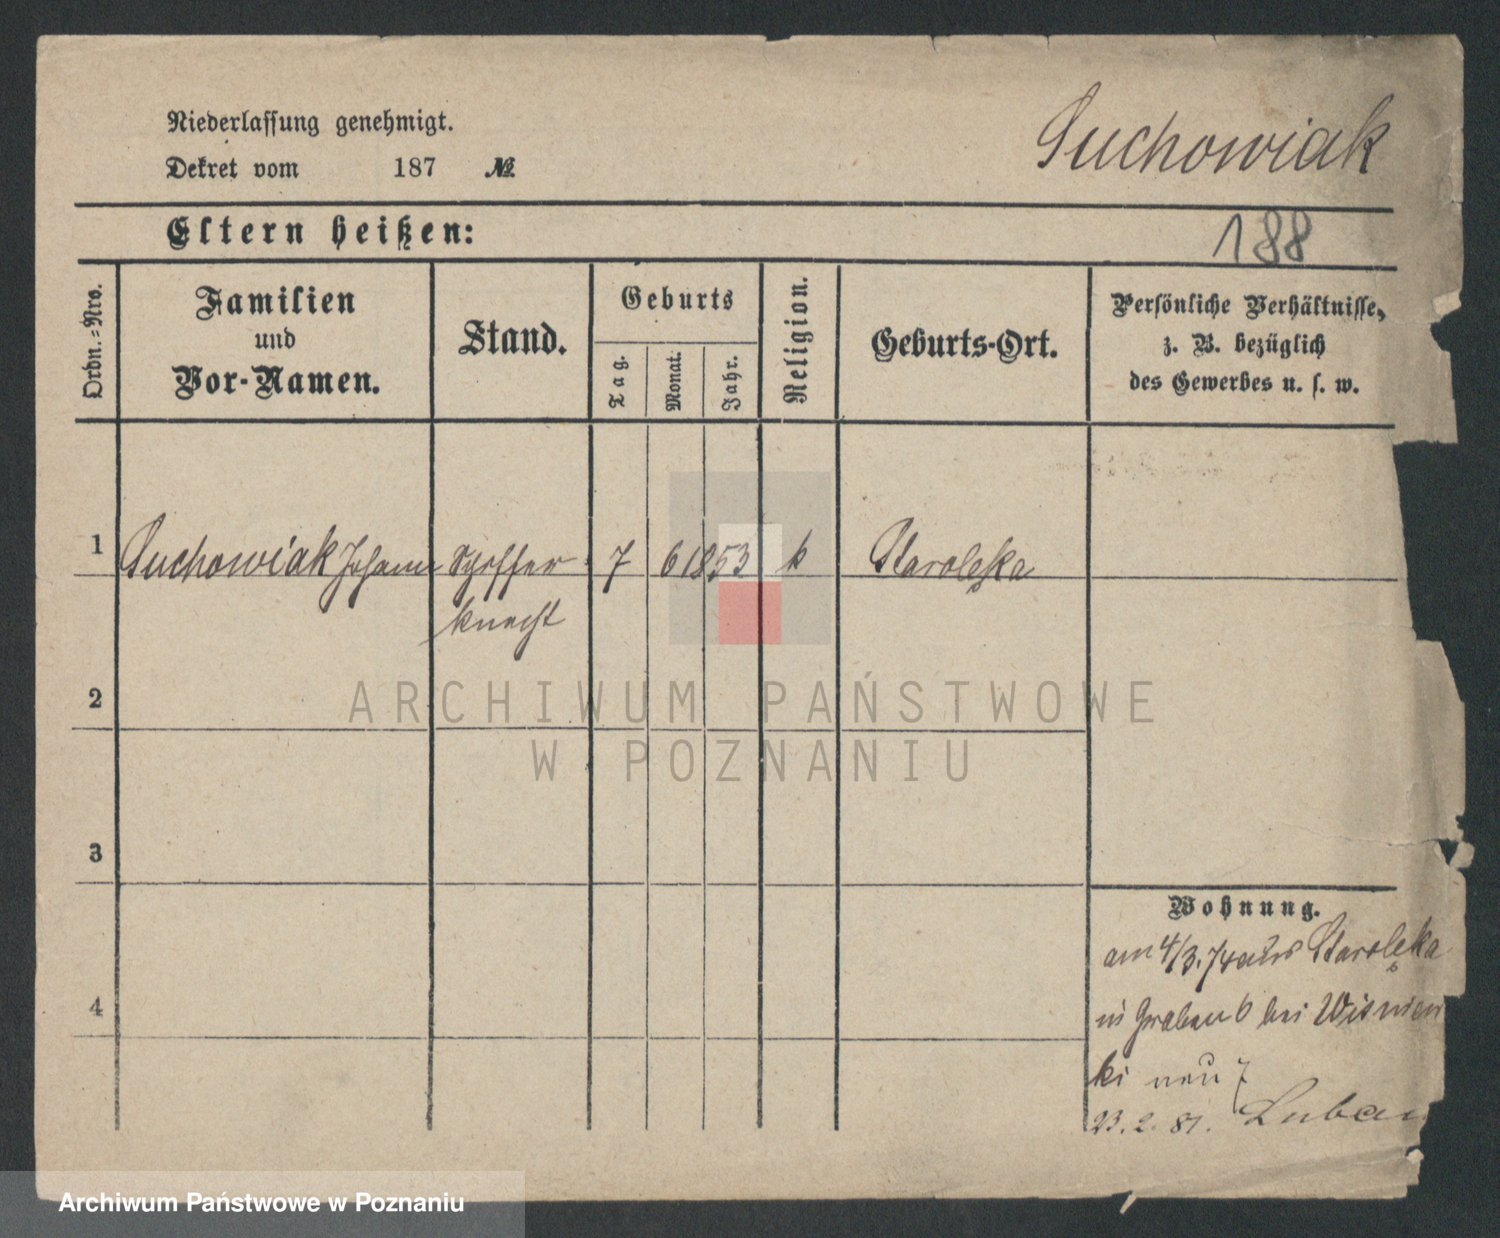 Niederlassung genehmigt.
Suchowiak
Dekret vom 187 №
Eltern heißen:
188
Ordn.-Nro.
Familien und Vor-Namen.
Stand.
Geburts
Tag.
Monat.
Jahr.
Religion.
Geburts-Ort.
Persönliche Verhältnisse,
z. B. bezüglich
des Gewerbes u. s. w.
1 Suchowiak Johann 7 6 1853 k Starolęka
knecht
2
ARCHIWUM PAŃSTWOWE
W POZNANIU
3
Wohnung.
am 4/3. 74 aus Starolęka
4
in Graben 6 bei Wisniew
ki neu 7
23. 2. 81. Luban
Archiwum Państwowe w Poznaniu